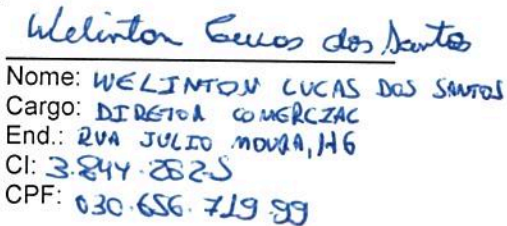 Welinton Lucas dos Santos
Nome: WELINTON LUCAS DOS SANTOS
Cargo: DIRETOR COMERCIAL
End.: RUA JULIO MOURA, 146
CI: 3.844.262-5
CPF: 030.656.719.99